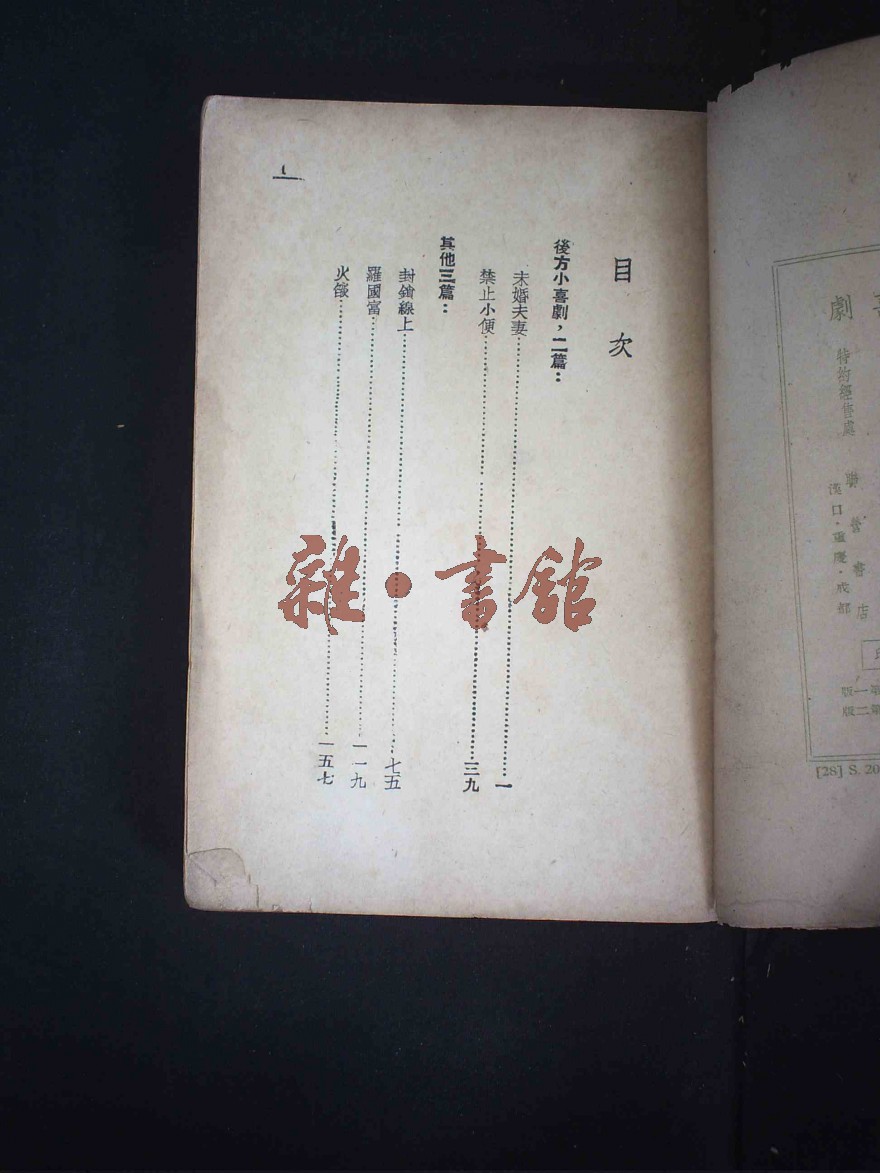 劇
特約經售處
聯營書店
漢口·重慶·成都
版一第
版二第
[28] S. 20
目次
後方小喜劇，二篇：
未婚夫妻⋯⋯一
禁止小便⋯⋯三九
其他三篇：
封鎖線上⋯⋯七五
羅國富⋯⋯一一九
火燄⋯⋯一五七
1
雜·書館